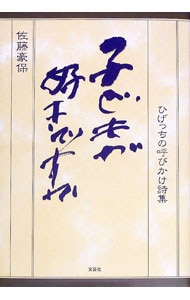 ひげっちの呼びかけ詩集
子どもが
好きですか
佐藤豪保
文芸社